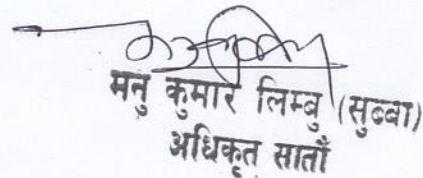 मनु कुमार लिम्बु (सुब्बा)
अधिकृत सातौँ